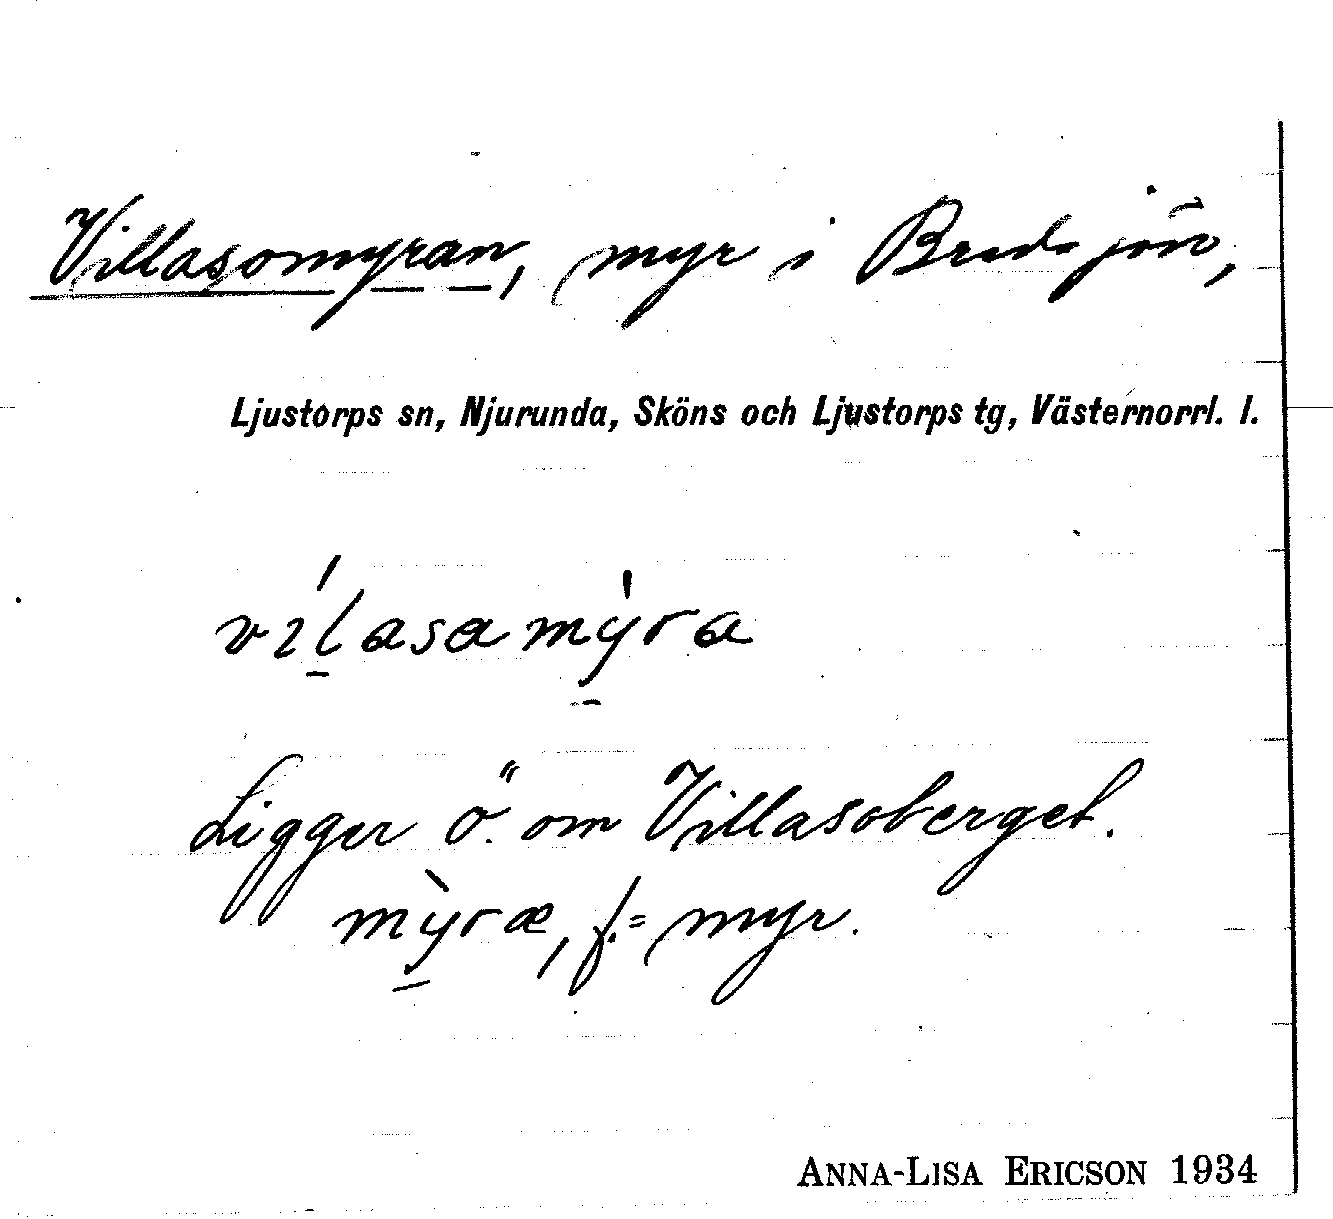 Villasomyran, myr i Bredsjön,
Ljustorps sn, Njurunda, Sköns och Ljustorps tg, Västernorrl. l.
vìlasamỳra
Ligger ö. om Villasoberget.
mỳræ, f. = myr.
ANNA-LISA ERICSON 1934